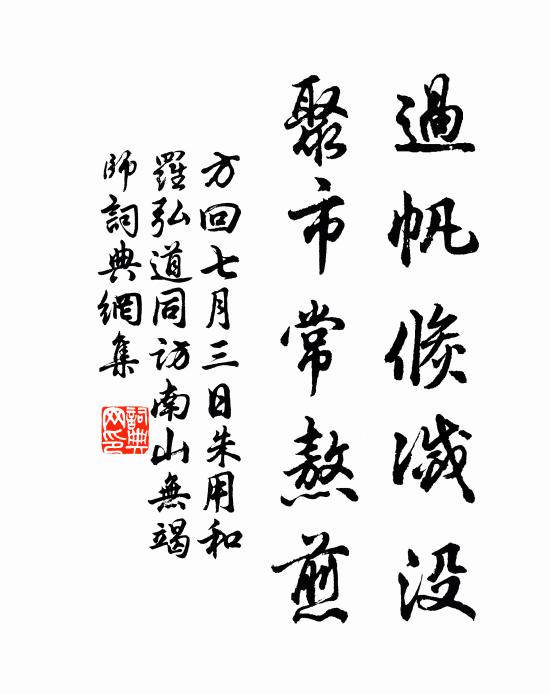 過帆倏滅没
聚市常熬煎
方回七月三日朱用和
羅弘道同訪南山無竭
師詞典網集
詞典网印